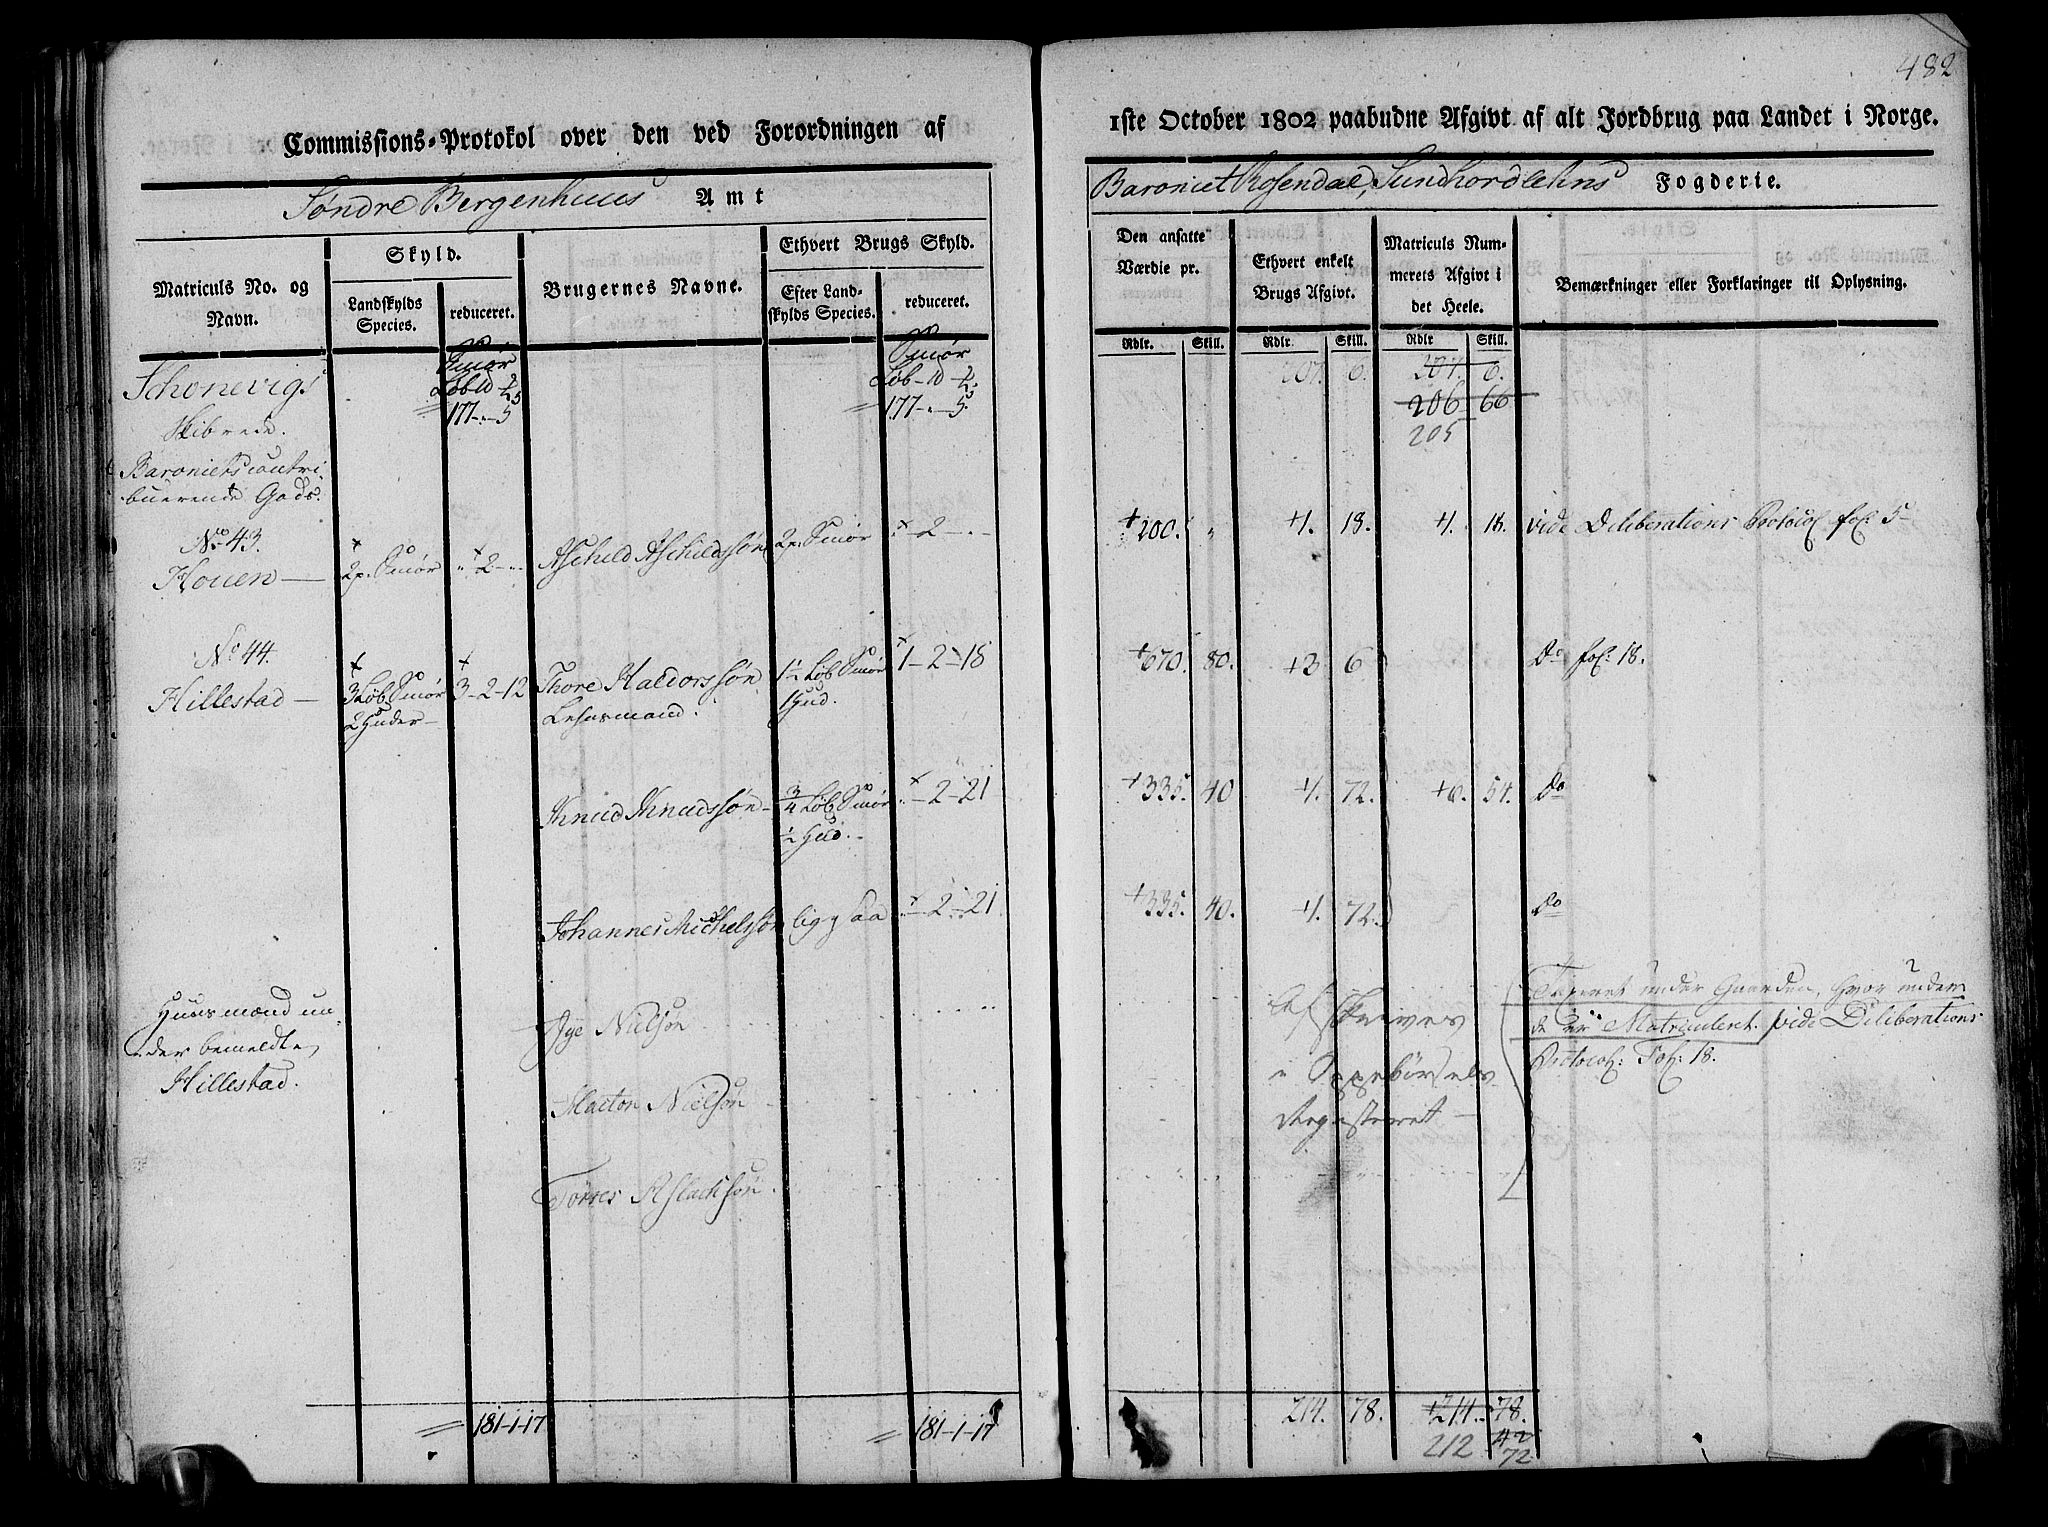 482
Commissions-Protokol over den ved Forordningen af
1ste October 1802 paabudne Afgivt af alt Jordbrug paa Landet i Norge.
Søndre Bergenhuus Amt
Baroniet Rosendal, Sundhordlehns Fogderie.
Matriculs No. og Navn.
Skyld.
Landskylds Species.
reduceret.
Brugernes Navne.
Ethvert Brugs Skyld.
Efter Landskylds Species.
reduceret.
Den ansatte Værdie pr.
Ethvert enkelt Brugs Afgivt.
Matriculs Nummerets Afgivt i det Heele.
Bemærkninger eller Forklaringer til Oplysning.
Rdlr. Skill. Rdlr. Skill. Rdlr Skill.
Schonevigs
Skibrede.
Smør
Løb
177 - " - 5
Smør
Løb
177 - " - 5
207. 6.
207. 6.
206 66
205
Baroniets contri
buerende Gods.
No. 43.
Houen — 2 p. Smør " 2 - " Aschild Aschildssøn 2 p. Smør " - 2 - " -
+ 200. " +1. 18. +1. 18. vide Deliberations Protocol fol. 5
No 44.
Hillestad — 3 Løb Smør 3-2-12 Thore Haldorssøn 1½ Løb Smør 1-2-18
2 Huder — Lehnsmand. 1 Hud.
+ 670. 80. +3 6 Do fol. 18.
Knud Knudssøn — ¾ Løb Smør " - 2 - 21
½ Hud. —
+ 335. 40 +1. 72. +6. 54. Do
Johannes Michelssøn ligesaa " - 2 - 21
+ 335. 40. +1. 72. Do
Huusmænd un-
der bemeldte
Hillestad.
Aye Nielsøn
Marton Nielsøn
Torres Aslachsøn
Afskrives
i Oppebørsels
Registeret —
Taxeret under Gaarden, hvor under
de er Matriculeret. vide Deliberations
Protocol: Fol: 18.
181-1-17
181-1-17
214. 78. +214. 78.
212 42
72